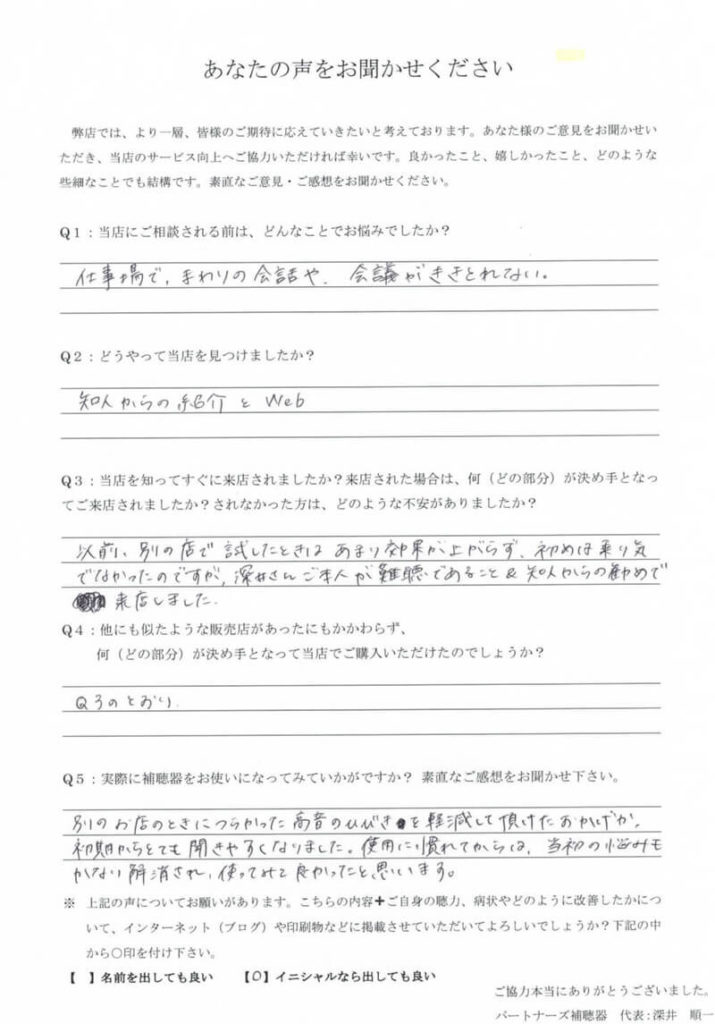 あなたの声をお聞かせください
弊店では、より一層、皆様のご期待に応えていきたいと考えております。あなた様のご意見をお聞かせい
ただき、当店のサービス向上へご協力いただければ幸いです。良かったこと、嬉しかったこと、どのような
些細なことでも結構です。素直なご意見・ご感想をお聞かせください。
Q1：当店にご相談される前は、どんなことでお悩みでしたか？
仕事場で、まわりの会話や、会議がききとれない。
Q2：どうやって当店を見つけましたか？
知人からの紹介と Web
Q3：当店を知ってすぐに来店されましたか？来店された場合は、何（どの部分）が決め手となっ
てご来店されましたか？されなかった方は、どのような不安がありましたか？
以前、別の店で試したときはあまり効果が上がらず、初めは乗り気
でなかったのですが、深井さんご本人が難聴であること＆知人からの勧めで
来店しました.
Q4：他にも似たような販売店があったにもかかわらず、
何（どの部分）が決め手となって当店でご購入いただけたのでしょうか？
Q3のとおり.
Q5：実際に補聴器をお使いになってみていかがですか？ 素直なご感想をお聞かせ下さい。
別のお店のときにつらかった高音のひびきを軽減して頂けたおかげか、
初期からとても聞きやすくなりました。使用に慣れてからは、当初の悩みも
かなり解消され、使ってみて良かったと思います。
※ 上記の声についてお願いがあります。こちらの内容+ご自身の聴力、病状やどのように改善したかにつ
いて、インターネット（ブログ）や印刷物などに掲載させていただいてよろしいでしょうか？下記の中
から〇印を付け下さい。
【 】名前を出しても良い 【O】イニシャルなら出しても良い
ご協力本当にありがとうございました。
パートナーズ補聴器 代表：深井 順一